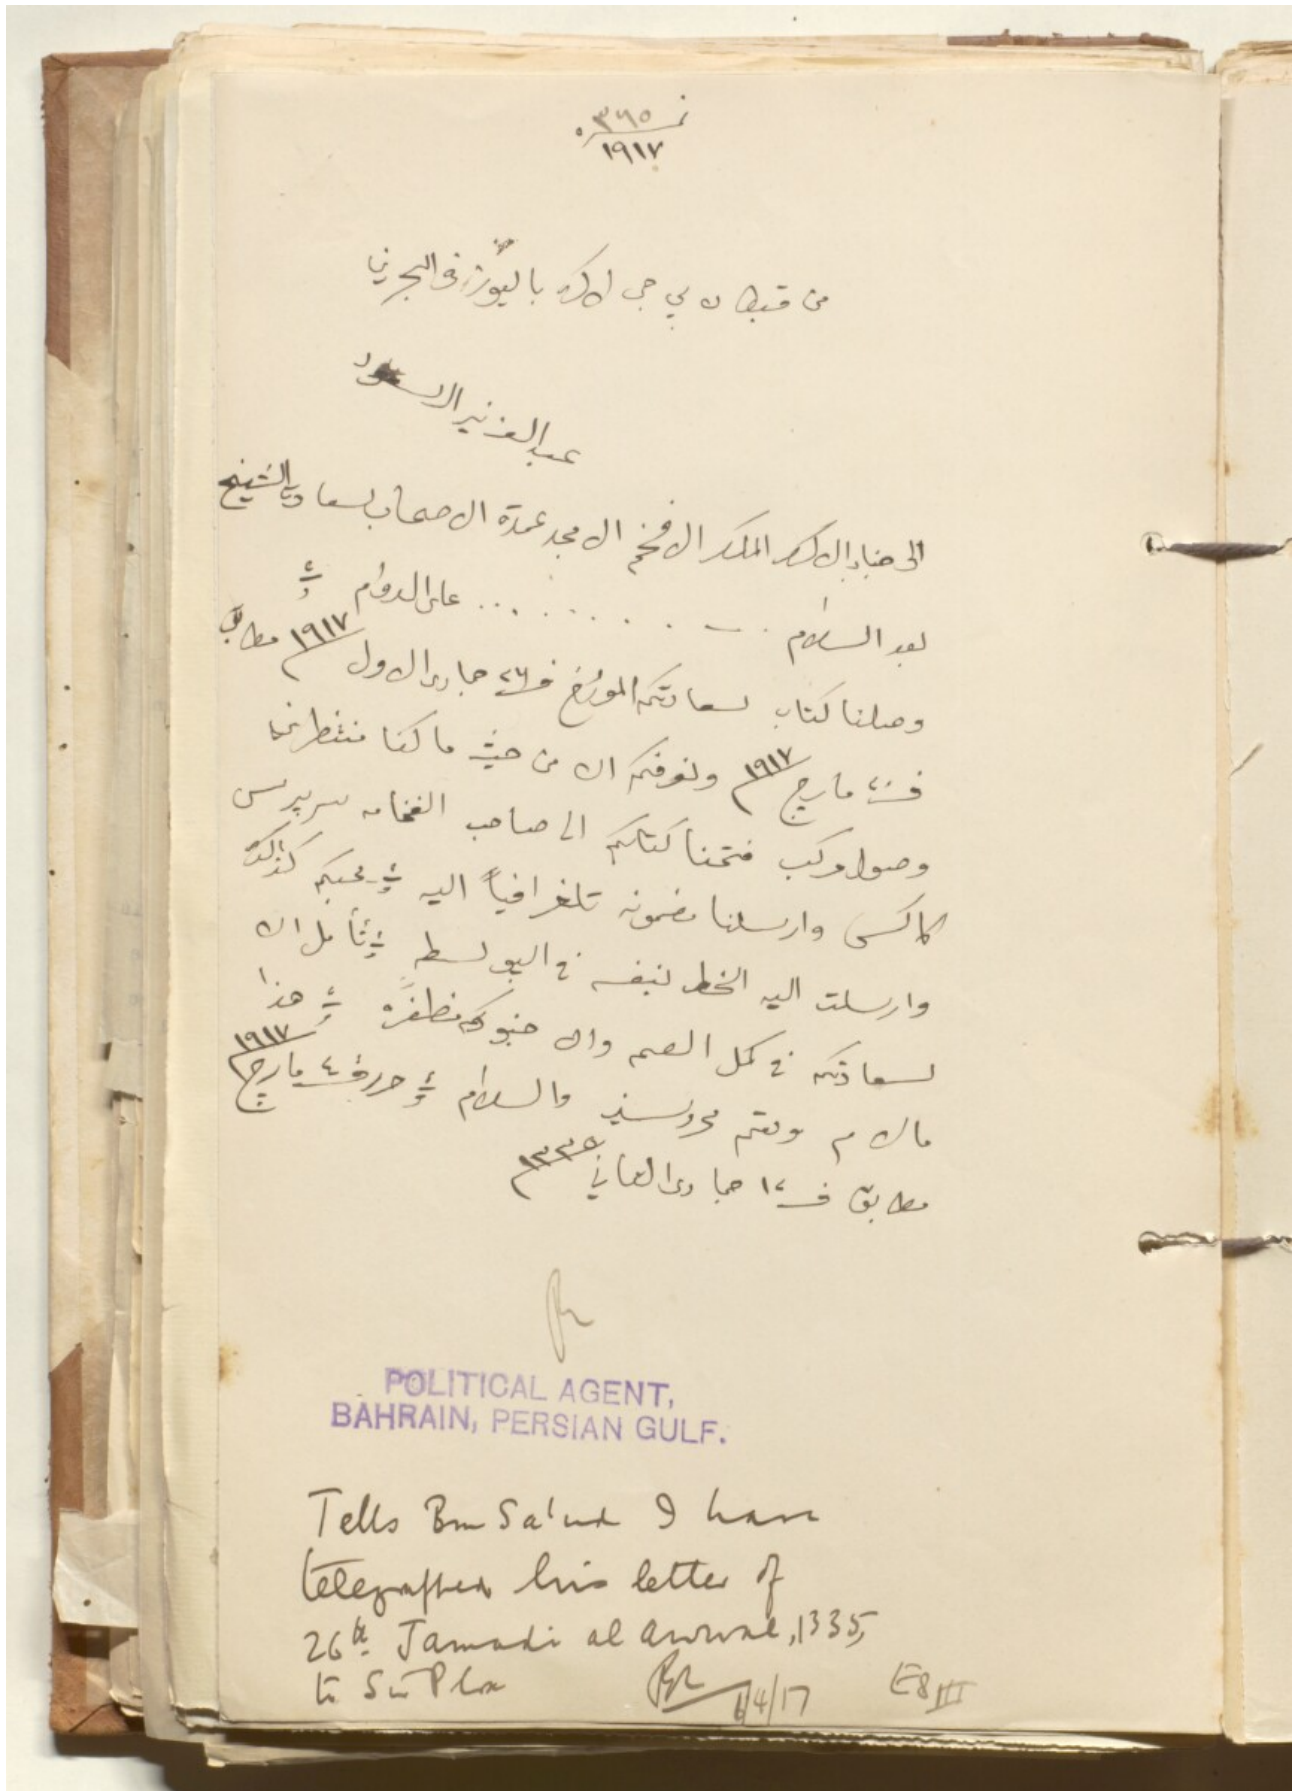 نمره ٣٦٥
١٩١٧
من قبطان بي جي لاك باليوز في البحرين
عبد العزيز ال سعود
الى جناب الاكرم المكرم الافخم الامجد عمدة الاصحاب سعادة الشيخ
بعد السلام . . . . . . . . على الدوام
وصلنا كتاب سعادتكم المورخ في ٢٦ جمادى الاول ١٩١٧ مطابق
في ٢٠ مارچ ١٩١٧ ونعرفكم ان من حيث ما كنا منتظرين
وصول مركب فتحنا كتابكم الى صاحب الفخامه سر پرسي
كاكس وارسلنا مضمونه تلغرافياً اليه محبكم كذالك
وارسلت اليه الخط بنفسه في البوسطه نتأمل ان
سعادتكم في كمل الصحه وان جنودكم مظفره هذا
مالزم ودمتم محروسين والسلام حرر في ٤ مارچ ١٩١٧
مطابق في ١٢ جمادى الثاني ١٣٣٥
POLITICAL AGENT,
BAHRAIN, PERSIAN GULF.
Tells Bin Sa'ud I have
telegraphed his letter of
26th Jamadi al awwal, 1335,
to Sir P Cox
4/17 E8 III